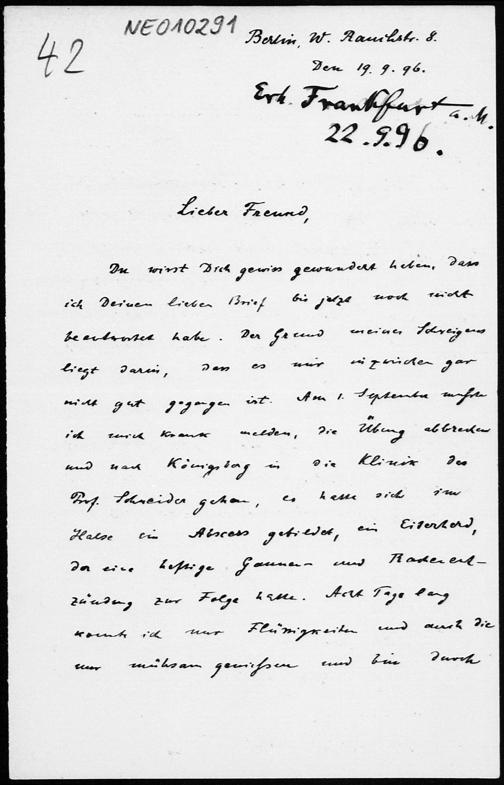 NEO10291
42
Berlin, W. Rauchstr. 8.
Den 19. 9. 96.
Erh. Frankfurt a. M.
22. 9. 96.
Lieber Freund,
Du wirst Dich gewiss gewundert haben, dass
ich Deinen lieben Brief bis jetzt noch nicht
beantwortet habe. Der Grund meines Schweigens
liegt darin, dass es mir inzwischen gar
nicht gut gegangen ist. Am 1. September musste
ich mich krank melden, die Übung abbrechen
und nach Königsberg in die Klinik des
Prof. Schneider gehen, es hatte sich im
Halse ein Abscess gebildet, ein Eiterherd,
der eine heftige Gaumen- und Rachenent-
zündung zur Folge hatte. Acht Tage lang
konnte ich nur Flüssigkeiten und auch die
nur mühsam geniessen und bin durch